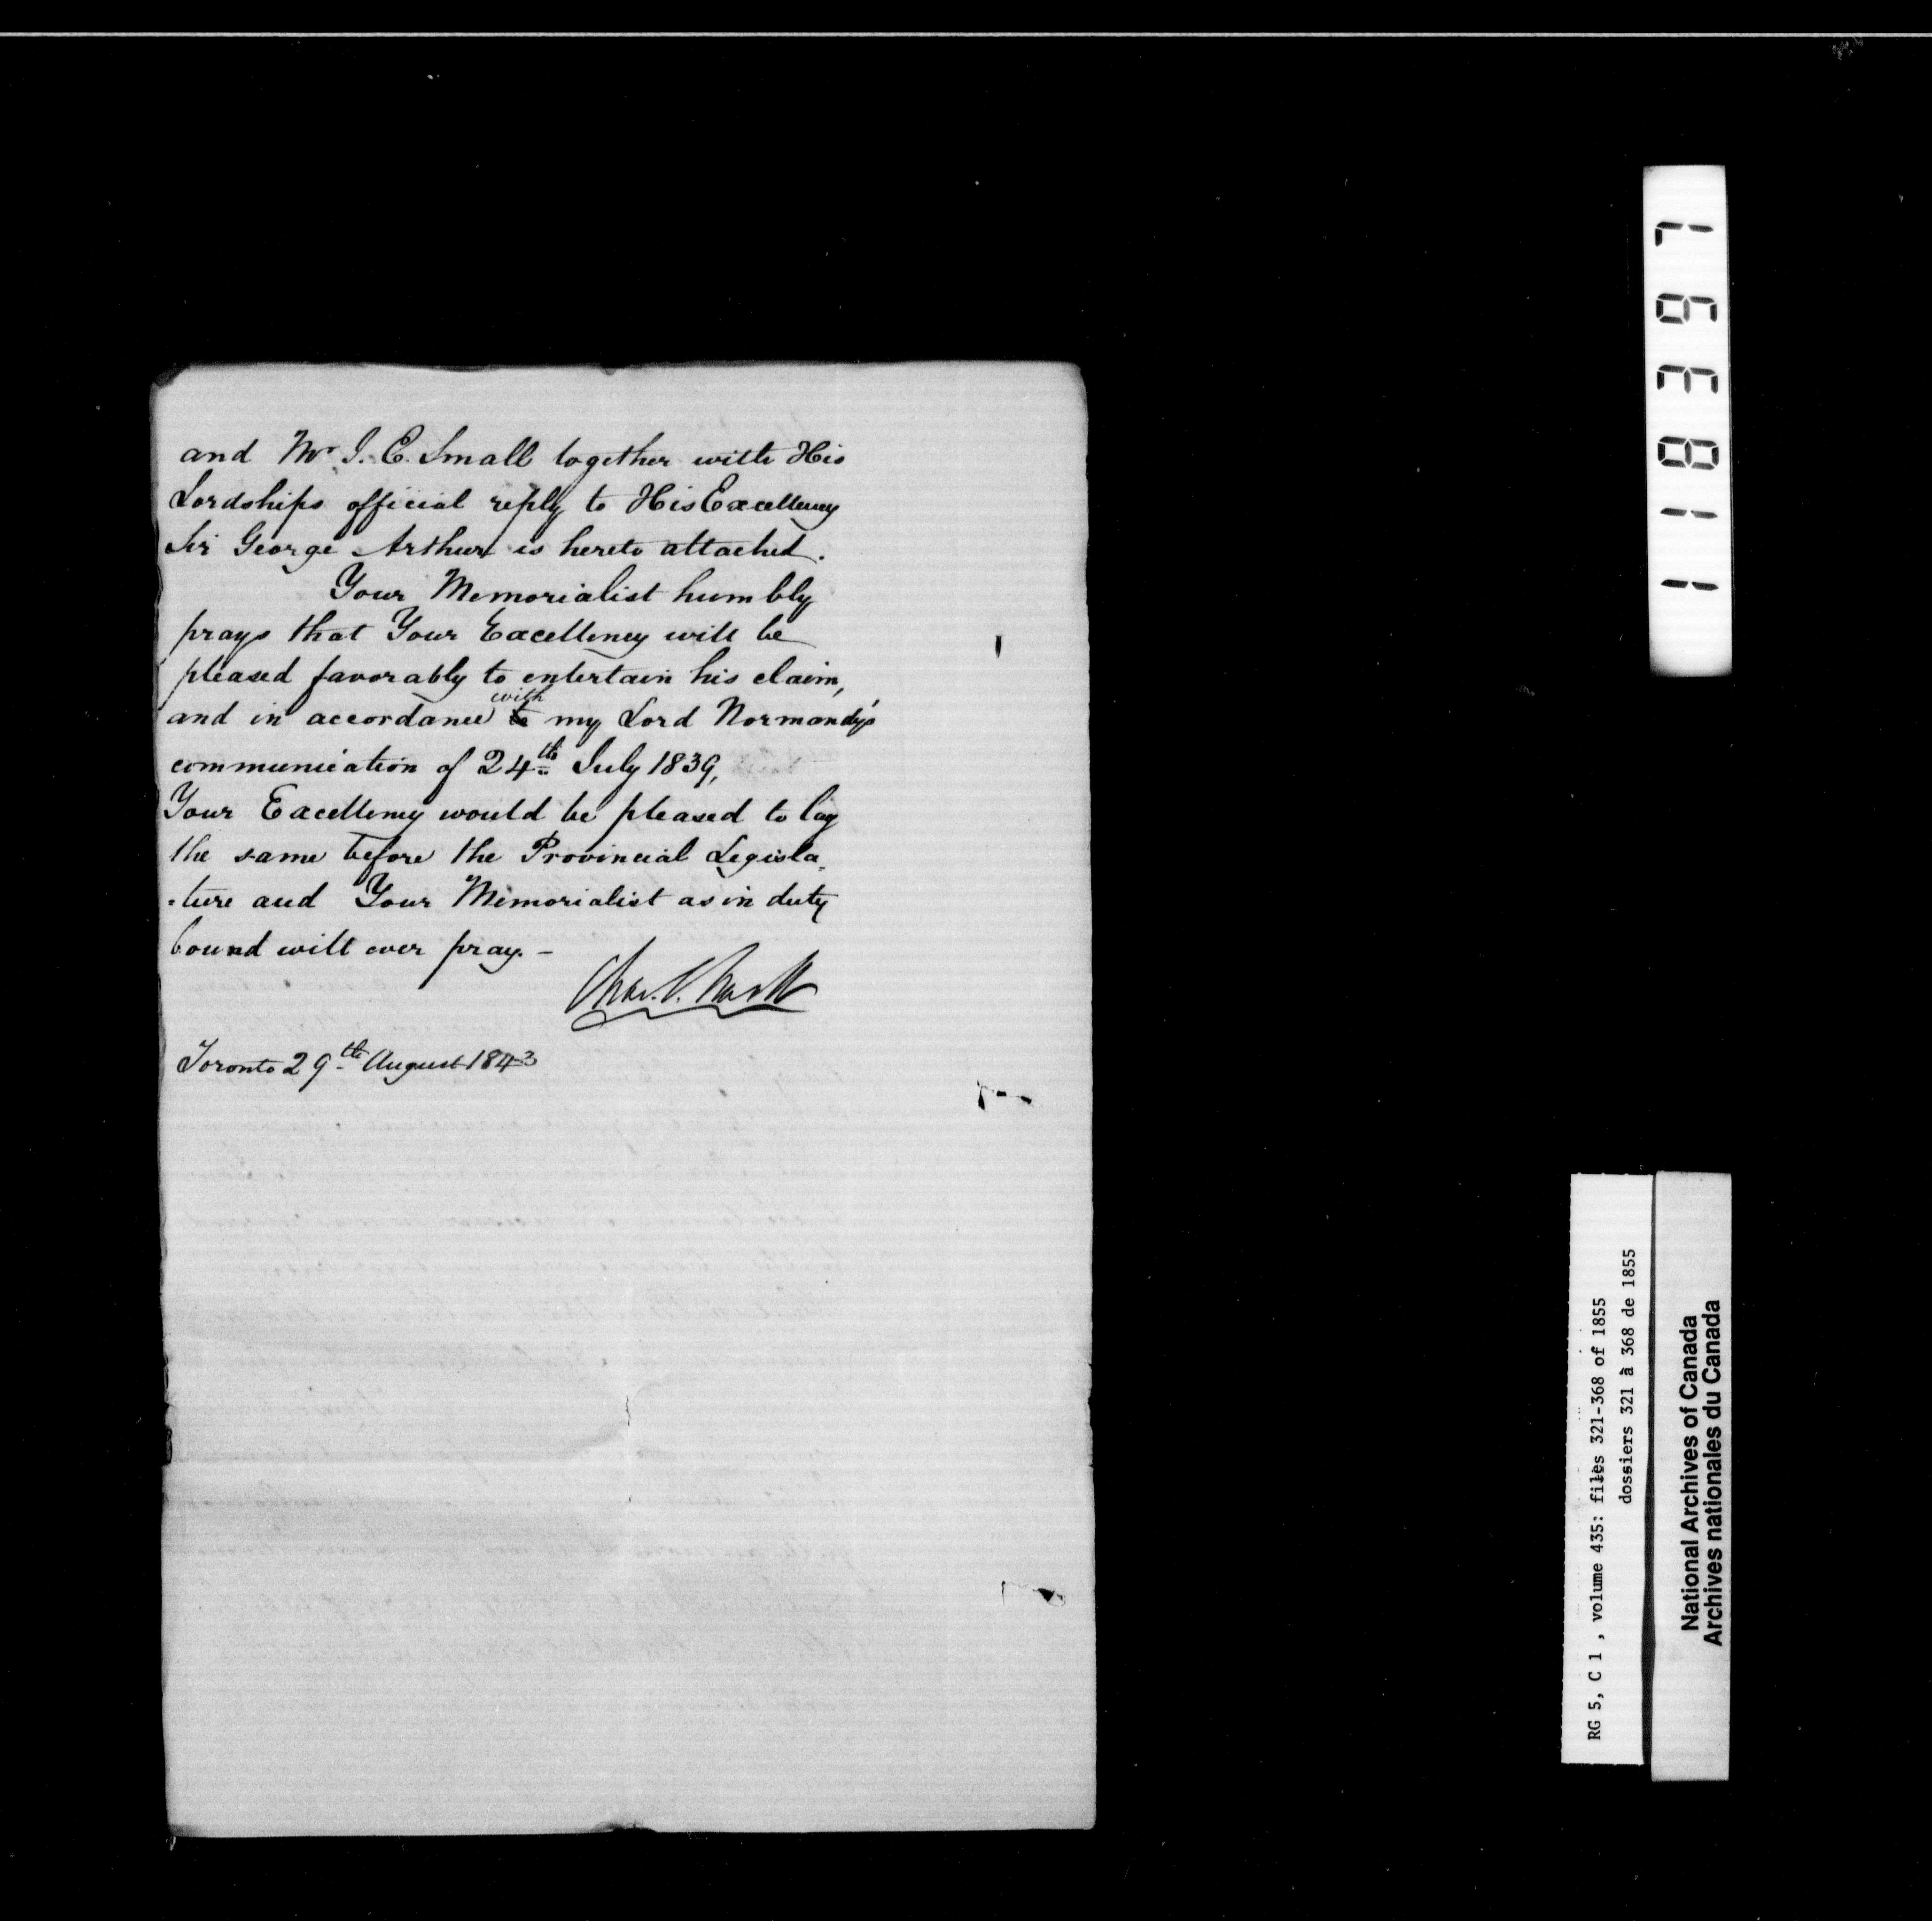 and Mr J. E. Small together with His
Lordships official reply to His Excellency
Sir George Arthur is hereto attached.
Your Memorialist humbly
prays that Your Excellency will be
pleased favorably to entertain his claim,
and in accordance to with my Lord Normandy's
communication of 24th July 1839,
Your Excellency would be pleased to lay
the same before the Provincial Legisla-
-ture and Your Memorialist as in duty
bound will ever pray. -
Toronto 29th August 1843
118397
RG 5, C 1 , volume 435: files 321-368 of 1855
dossiers 321 à 368 de 1855
National Archives of Canada
Archives nationales du Canada